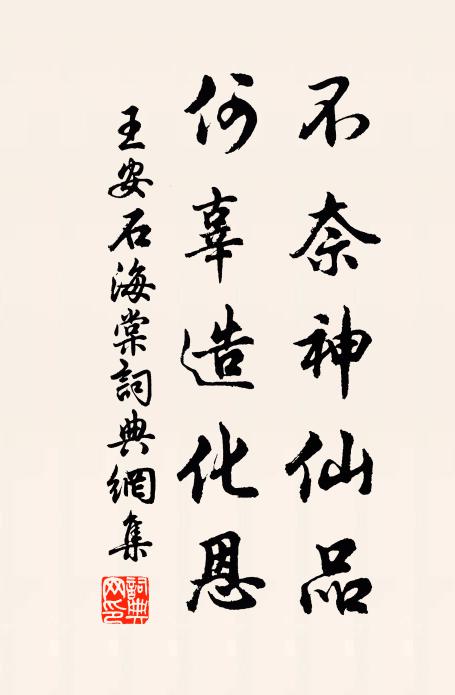 不奈神仙品
何辜造化恩
王安石海棠詞典網集
詞典網印